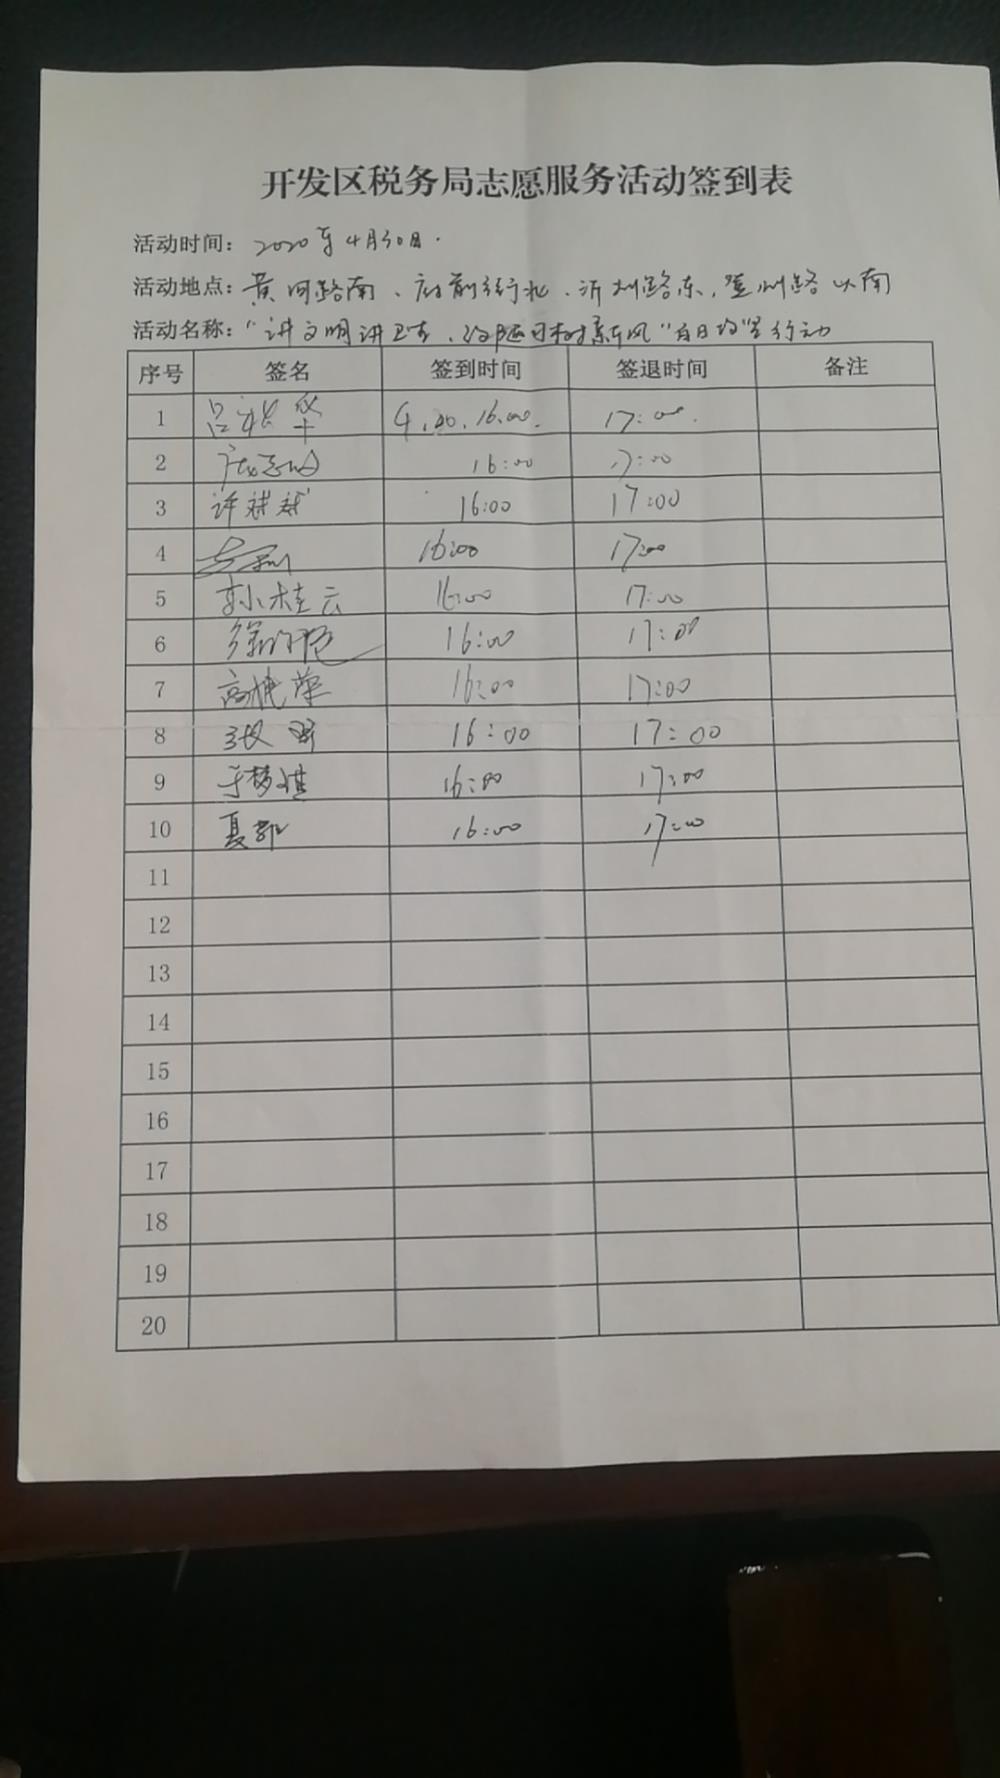 开发区税务局志愿服务活动签到表
活动时间：2020年4月30日.
活动地点：黄河路南、府前街北、沂州路东，登州路以南
活动名称："讲文明讲卫生、除陋习树新风"百日攻坚行动
序号 签名 签到时间 签退时间 备注
1 吕 华 4.30.16.00. 17:00.
2 16:00 17:00
3 许斌斌 16:00 17:00
4 16:00 17:00
5 孙桂云 16:00 17:00
6 徐 16:00 17:00
7 高艳萍 16:00 17:00
8 张 16:00 17:00
9 于梦琪 16:00 17:00
10 夏 16:00 17:00
11
12
13
14
15
16
17
18
19
20